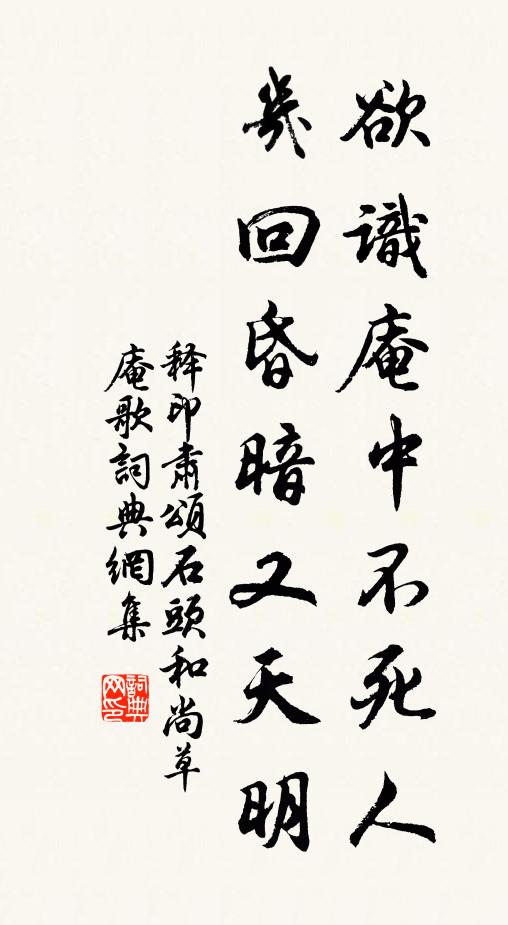 欲識庵中不死人
幾回昏暗又天明
释印肅頌石頭和尚草
庵歌詞典網集
詞典
网印